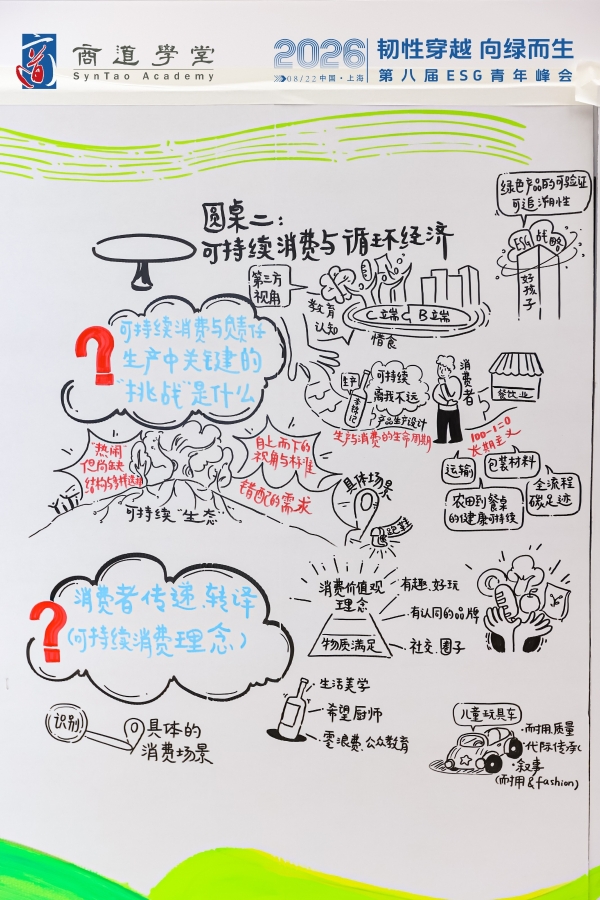 商道学堂
SynTao Academy
2026
08/22 中国·上海
韧性穿越 向绿而生
第八届ESG青年峰会
绿色产品的可验证
可追溯性
ESG 战略
好孩子
圆桌二：
可持续消费与循环经济
第三方
视角
教育
认知
C端 B端
惜食
?
可持续消费与负责任
生产中关键的
"挑战"是什么
生产
李锦记
可持续
离我不远
产品生产设计
生产与消费的生命周期
消费者
餐饮业
100-1=0
长期主义
运输
包装材料
农田到餐桌
的健康可持续
全流程
碳足迹
"热闹
但尚缺
自上而下的
视角与标准
错配的需求
可持续"生态
具体场景
跑鞋
?
消费者传递、转译
(可持续消费理念)
消费价值观
理念
物质满足
有趣、好玩
有认同的品牌
社交、圈子
识别
具体的
消费场景
生活美学
希望厨师
零浪费、公众教育
儿童玩具车
·耐用、质量
·代际传承
·叙事
(耐用&fashion)